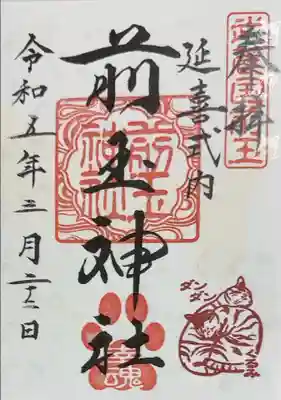 奉拝
武蔵国埼玉
延喜式内
前玉神社
前玉
神社
幸魂
令和五年三月二十二日